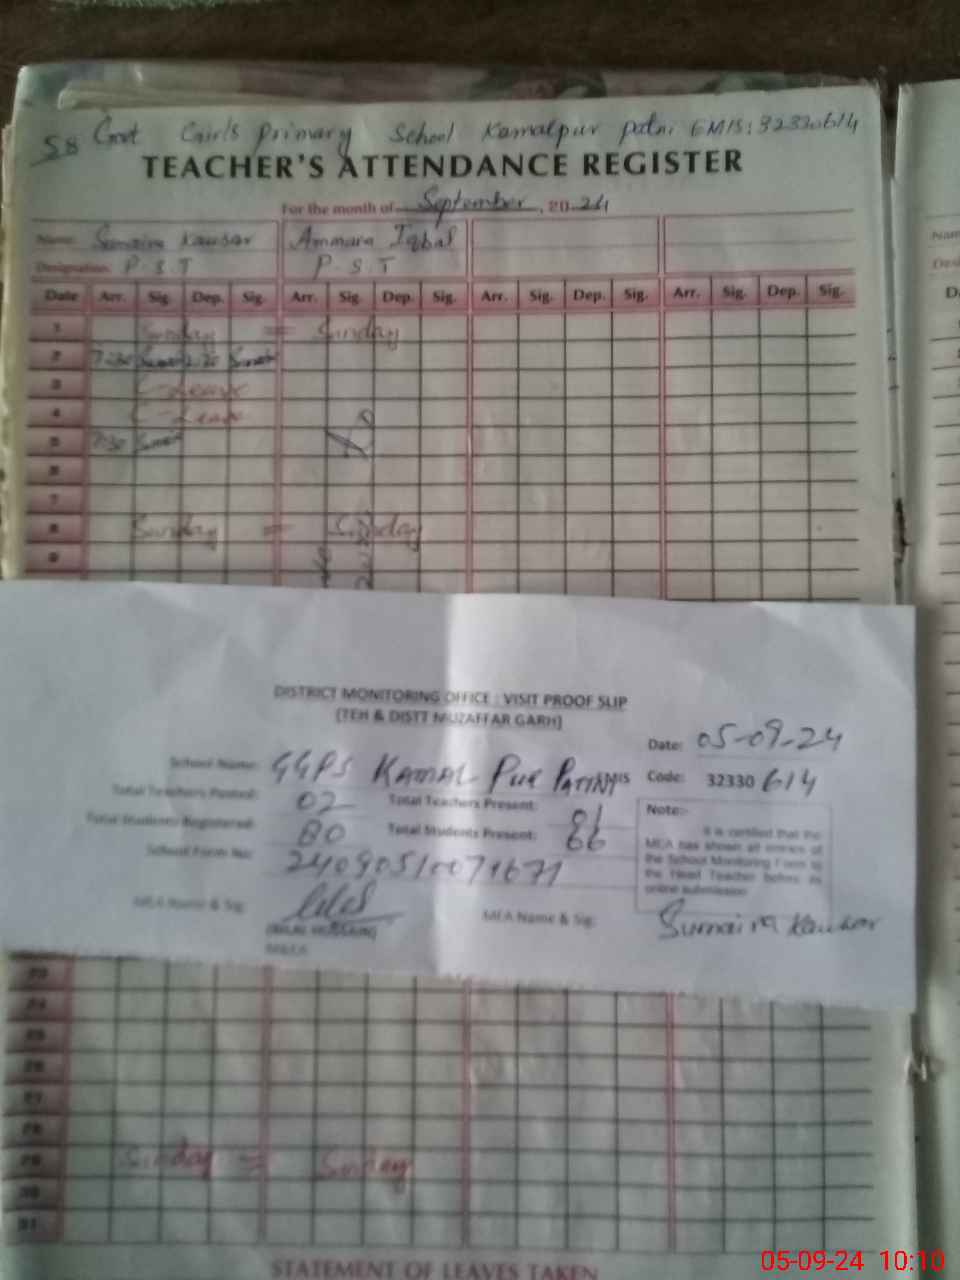 58 Govt Girls Primary School Kamalpur patni EMIS: 32330614
TEACHER'S ATTENDANCE REGISTER
For the month of September, 2024
Name: Sumaira Kausar Ammara Iqbal
Designation P.S.T P.S.T
Date Arr. Sig. Dep. Sig. Arr. Sig. Dep. Sig. Arr. Sig. Dep. Sig. Arr. Sig. Dep. Sig.
1 Sunday = Sunday
2 7:30
3 C-Leave
4 C-Leave
5 7:30
6
7
8 Sunday = Sunday
9
DISTRICT MONITORING OFFICE : VISIT PROOF SLIP
(TEH & DISTT MUZAFFAR GARH)
Date: 05-09-24
School Name: GGPS KAMAL PUR PATTNI EMIS Code: 32330614
Total Teachers Posted: 02 Total Teachers Present: 01
Total Students Registered: 80 Total Students Present: 66
School Form No: 24090510071671
Note:-
It is certified that the
MEA has shown all entries of
the School Monitoring Form to
the Head Teacher before its
online submission
MEA Name & Sig: MEA Name & Sig: Sumaira Kausar
(BILAL HUSSAIN)
23
24
25
26
27
28
29 Sunday = Sunday
30
31
STATEMENT OF LEAVES TAKEN
05-09-24 10:10